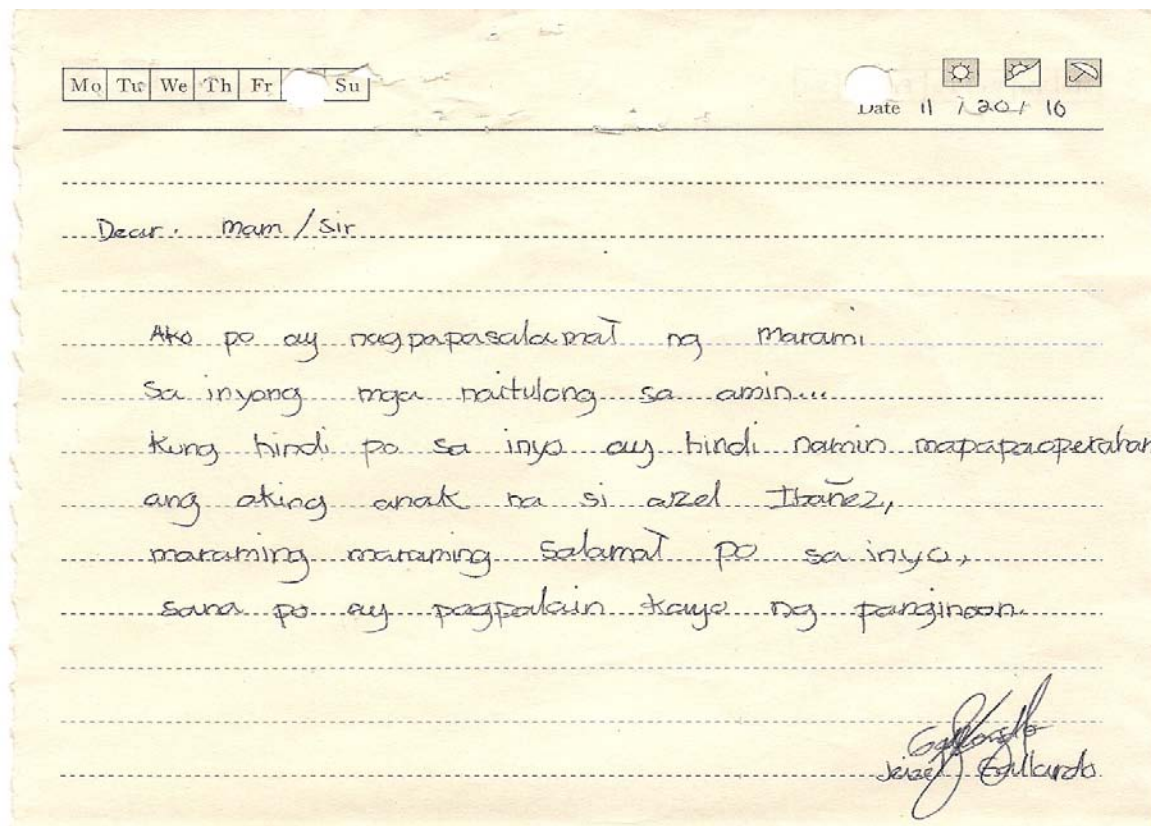 Mo Tu We Th Fr Su
Date 11 / 20 / 10
Dear. Mam / Sir
Ako po ay nagpapasalamat ng Marami
Sa inyong mga naitulong sa amin...
Kung hindi po sa inyo ay hindi namin mapapaoperahan
ang aking anak na si azel Ibañez,
maraming maraming Salamat po sa inyo,
sana po ay pagpalain kayo ng panginoon.
Gallardo